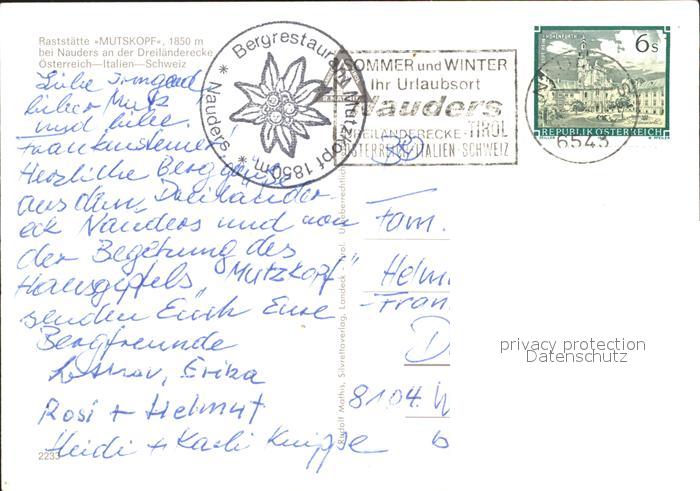 Raststätte »MUTSKOPF«, 1850 m
bei Nauders an der Dreiländerecke
Österreich—Italien—Schweiz
Liebe Irmgard
lieber Mutz
und liebe
Frankensteiner!
Herzliche Berggrüße
aus dem Dreiländer-
eck Nauders und von
der Begehung des
Hausgipfels "Mutzkopf"
senden Euch Eure
Bergfreunde
Erika
Rosi + Helmut
Heidi + Karli
2233
* Bergrestaurant Mutzkopf 1850m * Nauders
SOMMER und WINTER
Ihr Urlaubsort
Nauders
DREILÄNDERECKE-TIROL
ÖSTERREICH-ITALIEN-SCHWEIZ
6543
6 S
REPUBLIK ÖSTERREICH
Rudolf Mathis, Silvrettaverlag, Landeck - Tirol. Urheberrechtlich
Fam.
Helm
Fran
D
8104 W
b
privacy protection
Datenschutz